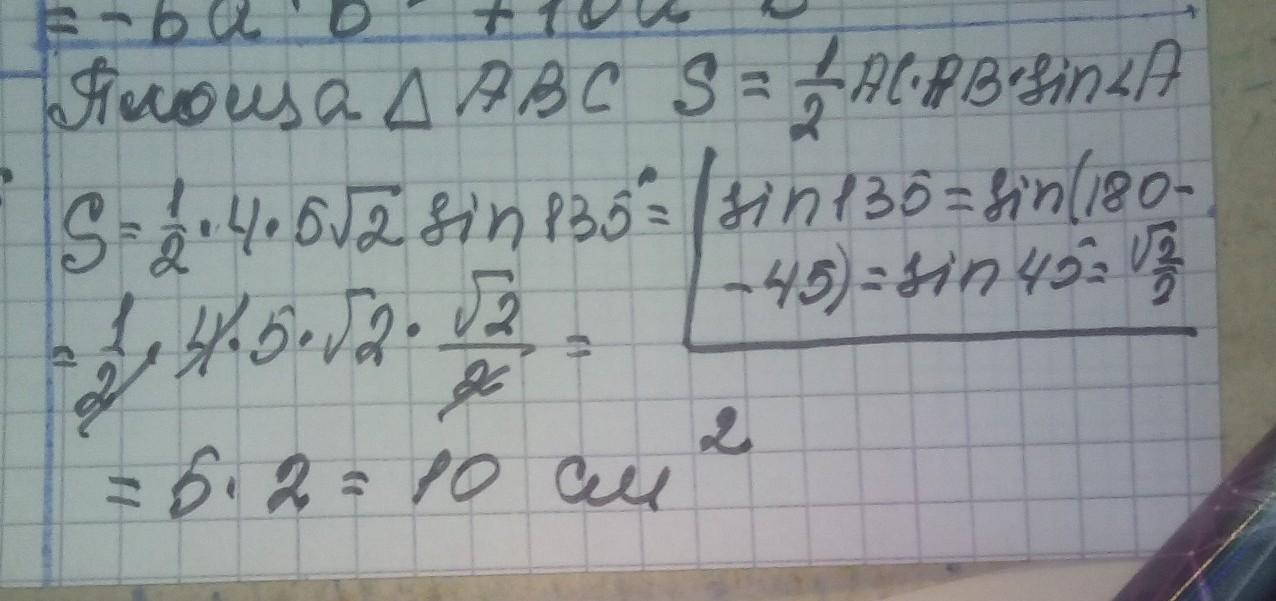 = -6a b + 10a b
Площа △ ABC S = 1/2 AC·AB·sin∠A
S = 1/2 · 4 · 5√2 sin 135° =
sin 135 = sin(180-
-45) = sin 45° = √2/2
= 1/2 · 4 · 5 · √2 · √2/2 =
= 5 · 2 = 10 см²